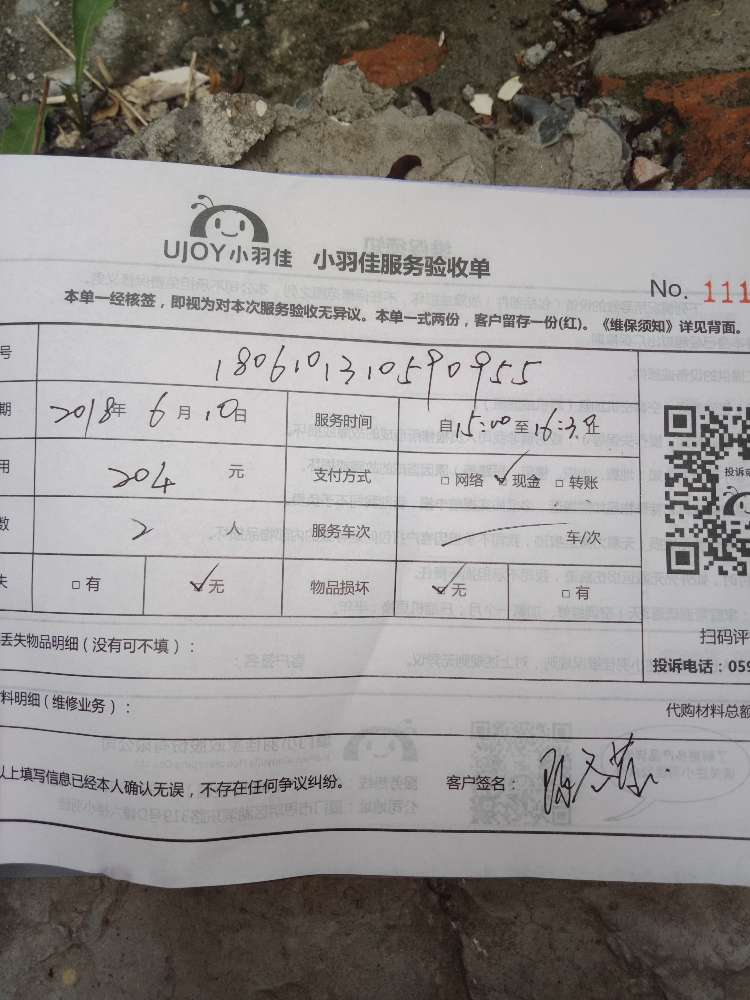 UJOY小羽佳 小羽佳服务验收单
No. 111
本单一经核签，即视为对本次服务验收无异议。本单一式两份，客户留存一份(红)。《维保须知》详见背面。
号 1806101310590955
期 2018年 6月 10日 服务时间 自15:00至16:35
用 204 元 支付方式 □网络 ✓现金 □转账
数 2 人 服务车次 车/次
投诉
失 □有 ✓无 物品损坏 ✓无 □有
扫码评
丢失物品明细（没有可不填）：
投诉电话：059
料明细（维修业务）：
代购材料总额
以上填写信息已经本人确认无误，不存在任何争议纠纷。 客户签名：